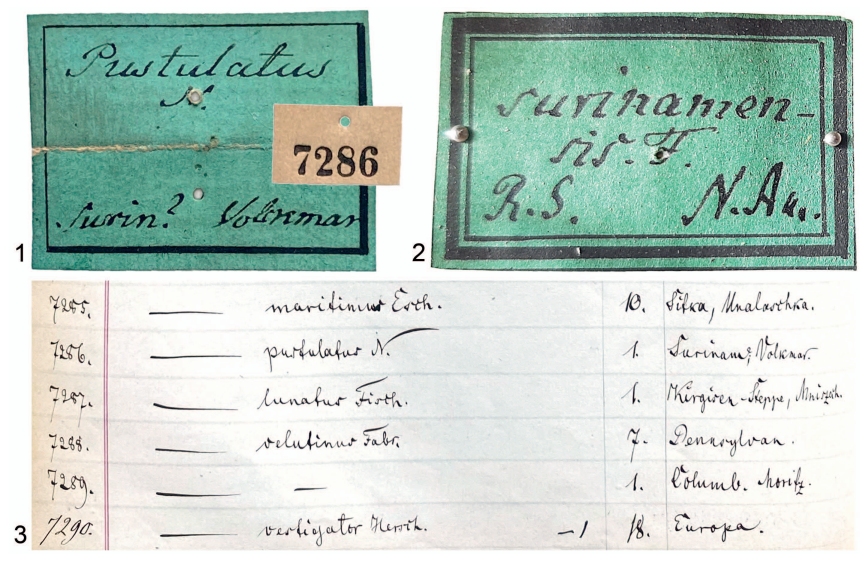 Pustulatus
N.
7286
Surin? Volcremar
1
surinamen-
sis. F.
R. S. N. Au.
2
7285. — maritimus Esch. 10. Sitka, Unalaschka.
7286. — pustulatus N. 1. Surinam? Volkmar.
7287. — lunatus Fisch. 1. Kirgisen-Steppe, Mniszech.
7288. — velutinus Fabr. 7. Pennsylvan.
7289. — — 1. Columb. Moritz.
7290. — vestigator Hersch. –1 18. Europa.
3